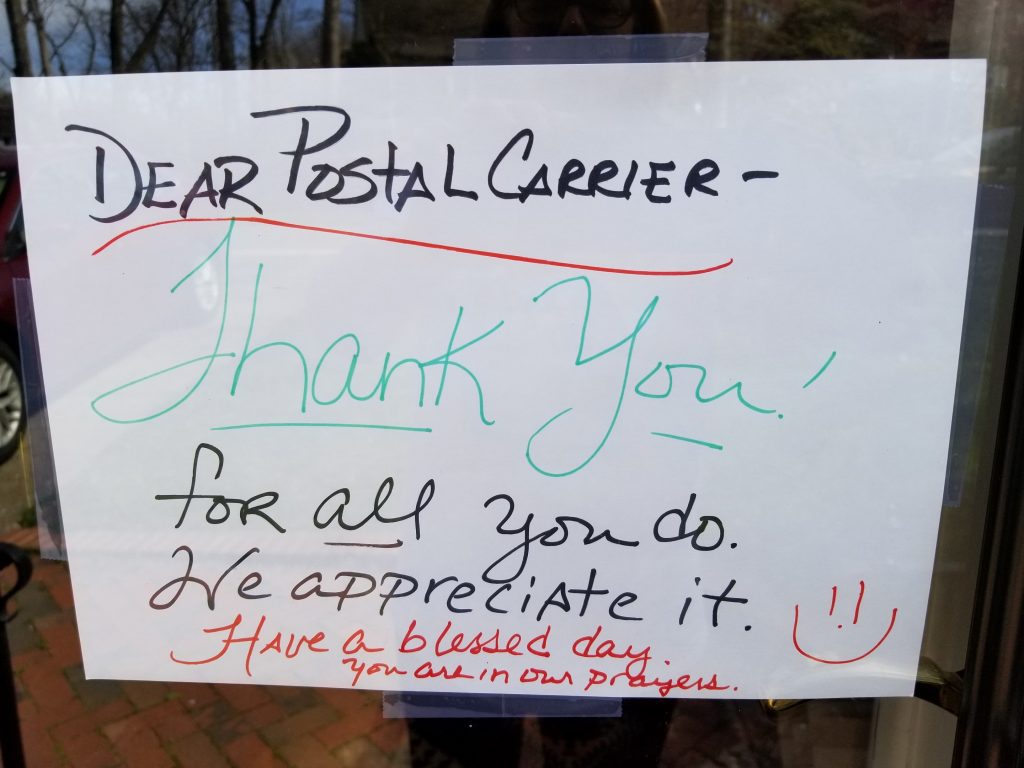 DEAR POSTAL CARRIER -
Thank You!
for all you do.
We appreciate it.
Have a blessed day.
you are in our prayers.